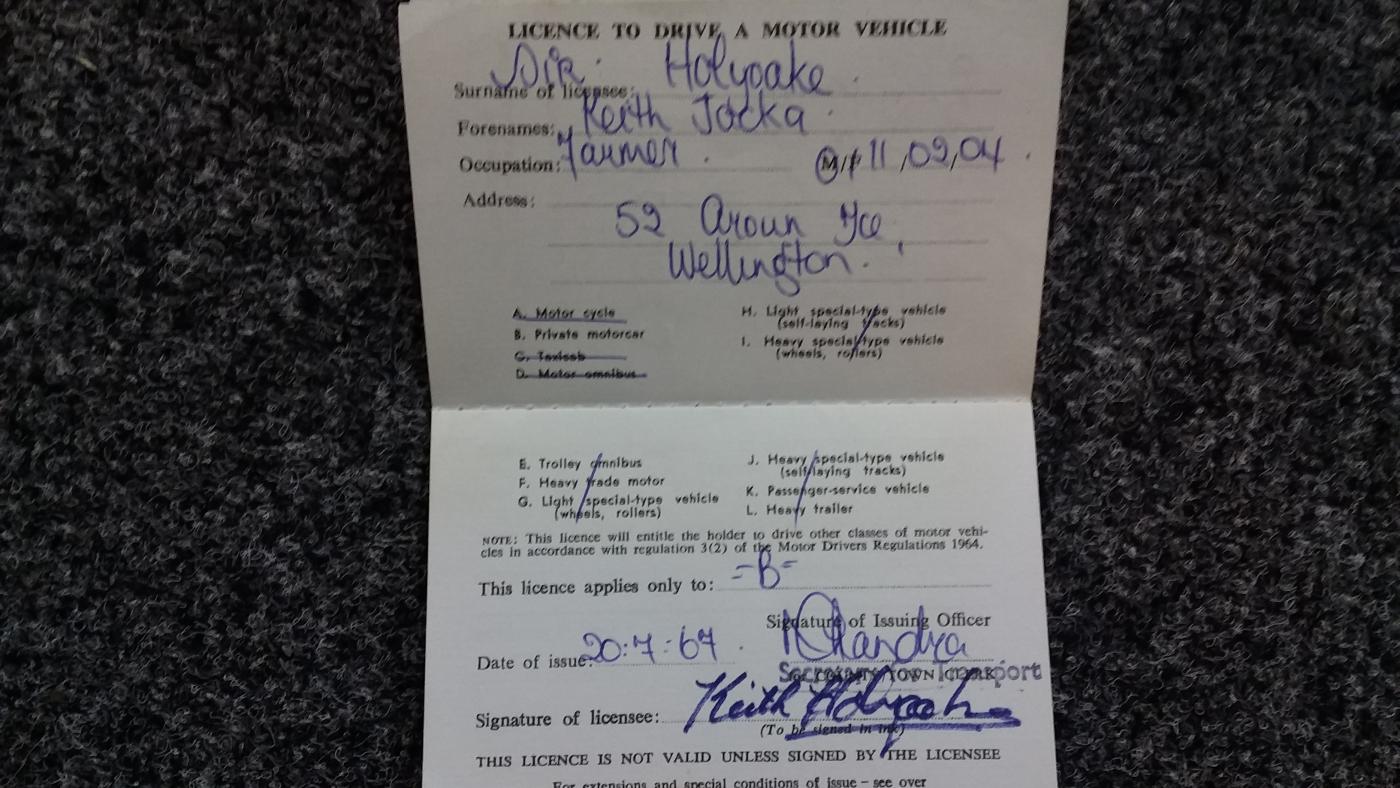 LICENCE TO DRIVE A MOTOR VEHICLE
Surname of licensee: Sir. Holyoake.
Forenames: Keith Jacka.
Occupation: Farmer. M/F 11,02,04.
Address:
52 Aroun Tce,
Wellington.
A. Motor cycle H. Light special-type vehicle
(self-laying tracks)
B. Private motorcar I. Heavy special type vehicle
C. Taxicab (wheels, rollers)
D. Motor omnibus
E. Trolley omnibus J. Heavy special-type vehicle
(self laying tracks)
F. Heavy trade motor K. Passenger-service vehicle
G. Light special-type vehicle L. Heavy trailer
(wheels, rollers)
NOTE: This licence will entitle the holder to drive other classes of motor vehi-
cles in accordance with regulation 3(2) of the Motor Drivers Regulations 1964.
This licence applies only to: =B=
Signature of Issuing Officer
Date of issue: 20:7:67. Chandra
Secretary Transport
TOWN CLERK
Signature of licensee: Keith Holyoake
(To be signed in ink)
THIS LICENCE IS NOT VALID UNLESS SIGNED BY THE LICENSEE
For extensions and special conditions of issue – see over